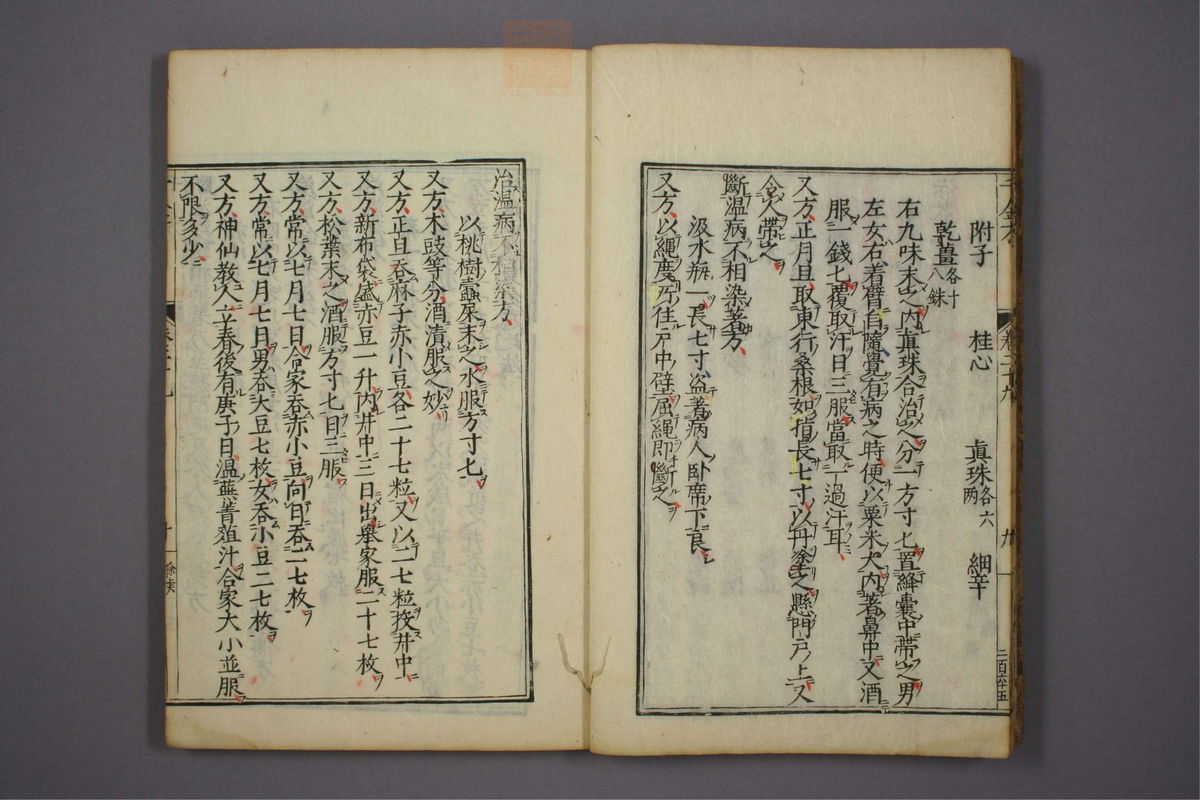 附子　桂心　真珠各六兩　細辛
乾薑各十八銖
右九味末之内真珠合治之分一方寸匕置絳囊中帶之男
左女右着臂自隨覺有病之時便以粟米大内著鼻中又酒
服一錢匕覆取汗日三服當取一過汗耳
又方正月旦取東行桑根如指長七寸以丹塗之懸門戶上又
令人帶之
斷温病不相染著方
汲水瓶一長七寸盗著病人卧席下良
又方以繩度所住戶中壁屈繩即斷之
二百六十五
治温病不相染方
以桃樹蠹屎末之水服方寸匕
又方木豉等分酒漬服之妙
又方正旦吞麻子赤小豆各二十七粒又以二七粒投井中
又方新布袋盛赤豆一升内井中三日出舉家服二十七枚
又方松葉末之酒服方寸匕日三服
又方常以七月七日合家吞赤小豆向日吞二七枚
又方常以七月七日男吞大豆七枚女吞小豆二七枚
又方神仙教人立春後有庚子日温蕪菁葅汁合家大小並服
不限多少